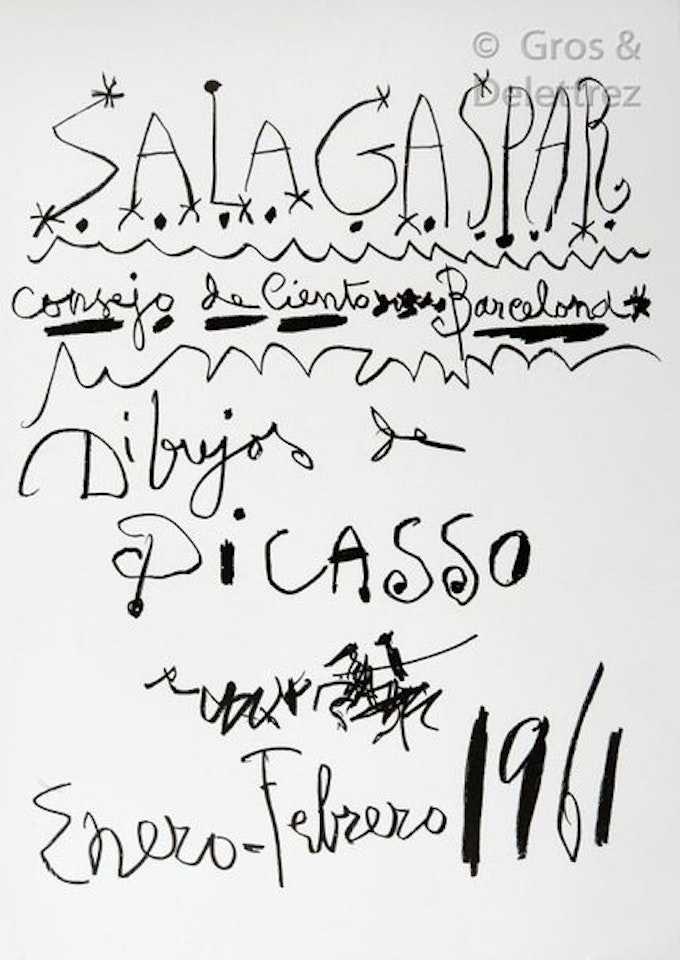 © Gros &
Delettrez
SALA GASPAR
Consejo de Ciento Barcelona
Dibujos de
PICASSO
Enero-Febrero 1961